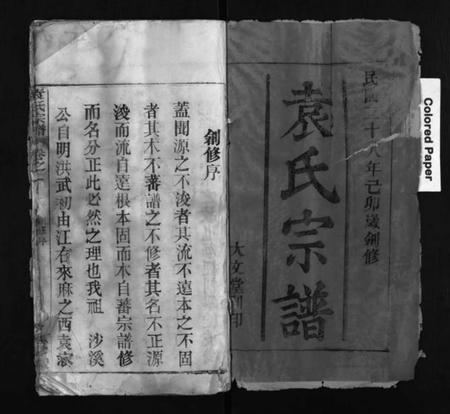 民國二十八年己卯歲創修
袁氏宗譜
大文堂刊印
Colored Paper
創修序
蓋聞源之不浚者其流不遠本之不固
者其木不蕃譜之不修者其名不正源
浚而流自遠根本固而木自蕃宗譜修
而名分正此必然之理也我祖 沙溪
公自明洪武初由江右來麻之西袁家
袁氏宗譜 卷之